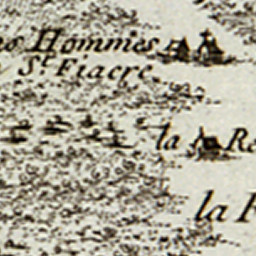 Hommes
St. Fiacre
la Re
la F